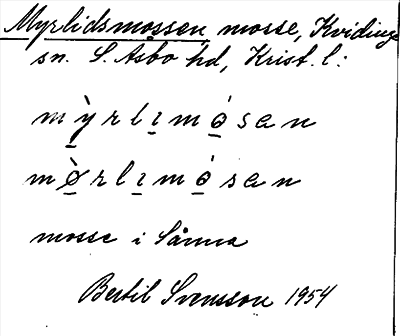 Myrlidsmossen mosse, Kvidinge
sn. S. Åsbo hd, Krist. l:
m ỳ̠ r l ı̠ m ó̠ s a n
m ø̠̀ r l ı̠ m ó̠ s a n
mosse i Sånna
Bertil Svensson 1954